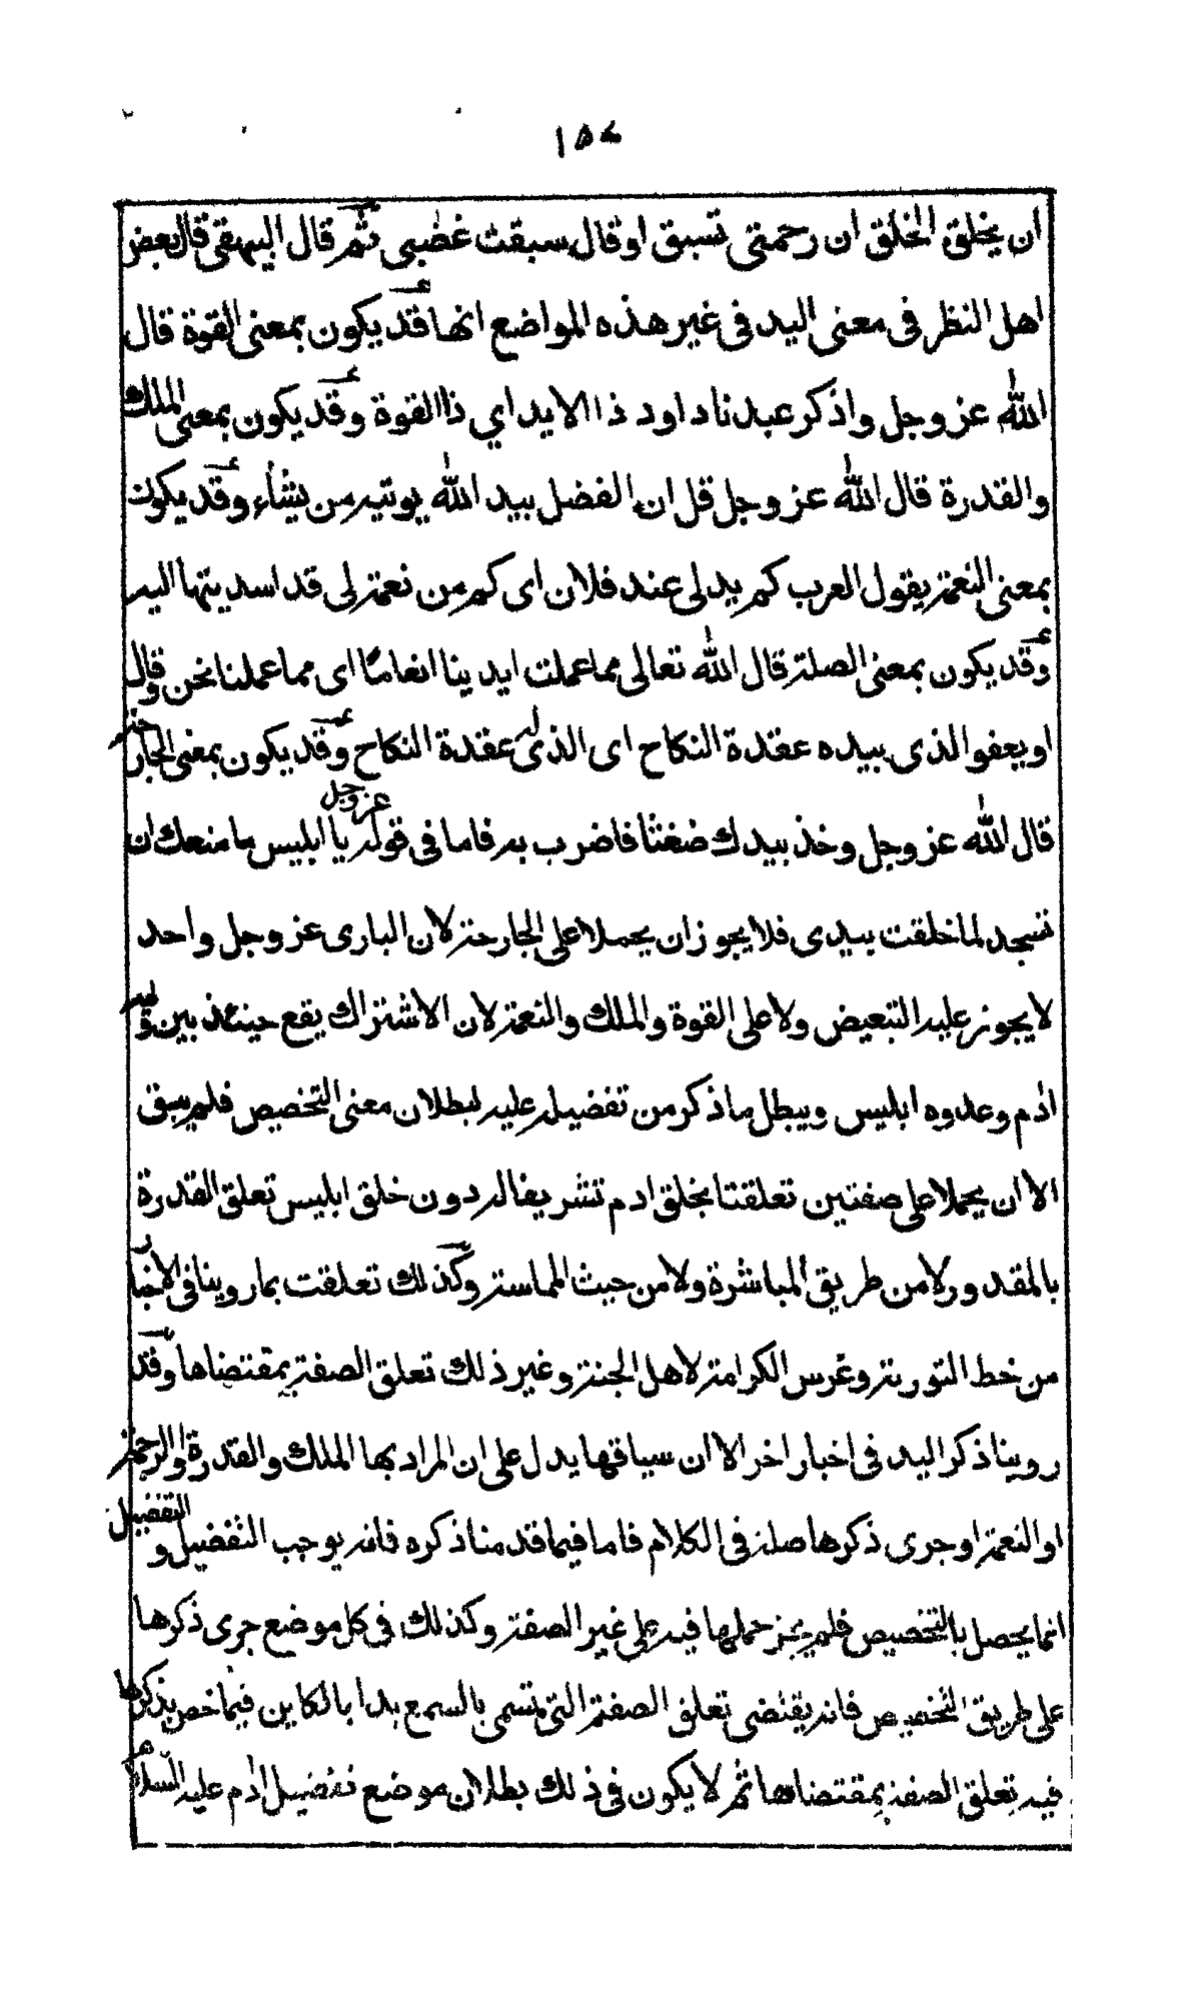 ١٥٧
ان يخلق الخلق ان رحمتى تسبق او قال سبقت غضبى ثم قال البيهقى قال بعض
اهل النظر فى معنى اليد فى غير هذه المواضع انها قد يكون بمعنى القوة قال
الله عز وجل واذكر عبدنا داود ذا الايد اي ذا القوة وقد يكون بمعنى الملك
والقدرة قال الله عز وجل قل ان الفضل بيد الله يوتيه من يشاء وقد يكون
بمعنى النعمة يقول العرب كم يد لى عند فلان اى كم من نعمة لى قد اسديتها اليه
وقد يكون بمعنى الصلة قال الله تعالى مما عملت ايدينا انعاما اى مما عملنا نحن وقال
او يعفو الذى بيده عقدة النكاح اى الذى له عقدة النكاح وقد يكون بمعنى الجارحة
قال الله عز وجل وخذ بيدك ضغثا فاضرب به فاما فى قوله عز وجل يا ابليس ما منعك ان
تسجد لما خلقت بيدى فلا يجوز ان يحملا على الجارحة لان البارى عز وجل واحد
لا يجوز عليه التبعيض ولا على القوة والملك والنعمة لان الاشتراك يقع حينئذ بين وليه
ادم وعدوه ابليس ويبطل ما ذكر من تفضيله عليه لبطلان معنى التخصيص فلم يبق
الا ان يحملا على صفتين تعلقتا بخلق ادم تشريفا له دون خلق ابليس تعلق القدرة
بالمقدور لا من طريق المباشرة ولا من حيث المماسة وكذلك تعلقت بما روينا فى الاخبار
من خط التورية وغرس الكرامة لاهل الجنة وغير ذلك تعلق الصفة بمقتضاها وقد
روينا ذكر اليد فى اخبار اخر الا ان سياقها يدل على ان المراد بها الملك والقدرة او الرحمة
او النعمة او جرى ذكرها صلة فى الكلام فاما فيما قدمنا ذكره فانه يوجب التفضيل والتفضيل
انما يحصل بالتخصيص فلم يجز حملها فيه على غير الصفة وكذلك فى كل موضع جرى ذكرها
على طريق التخصيص فانه يقتضى تعلق الصفة التى تسمى بالسمع يدا بالكاين فيما خص بذكرها
فيه تعلق الصفة بمقتضاها ثم لا يكون فى ذلك بطلان موضع تفضيل ادم عليه السلام